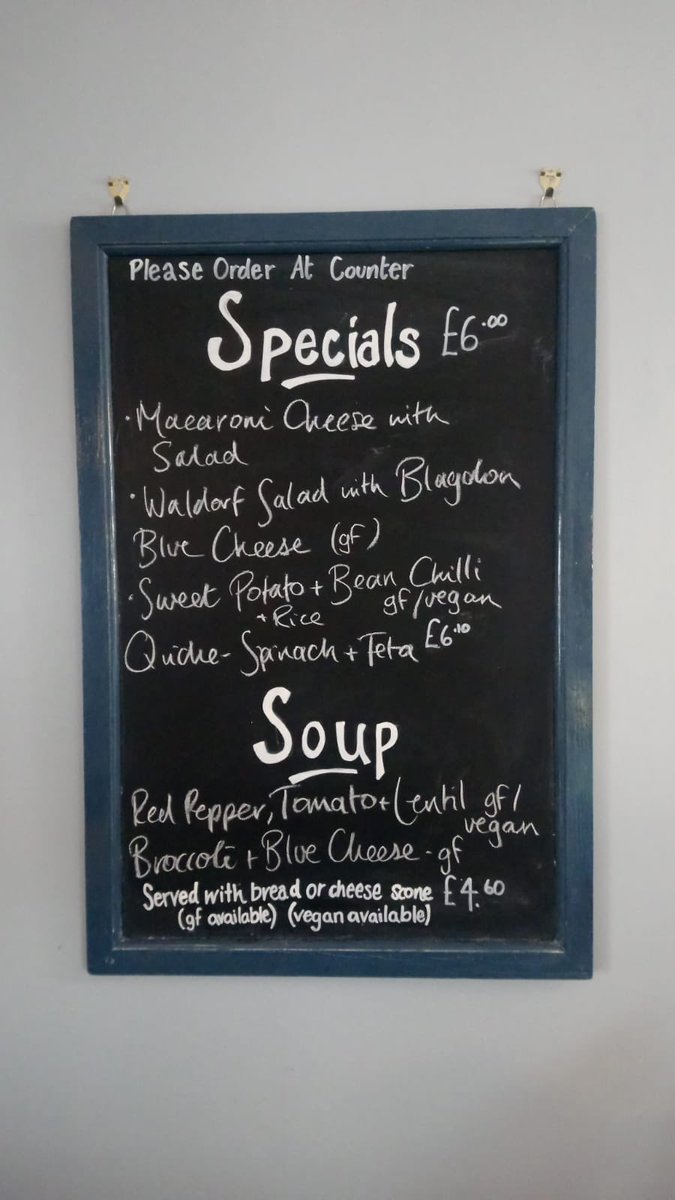 Please Order At Counter
Specials £6.00
· Macaroni Cheese with
Salad
· Waldorf Salad with Blagdon
Blue Cheese (gf)
· Sweet Potato + Bean Chilli
+ Rice gf/vegan
Quiche - Spinach + Feta £6.10
Soup
Red Pepper, Tomato + Lentil gf/
vegan
Broccoli + Blue Cheese - gf
Served with bread or cheese scone £4.60
(gf available) (vegan available)